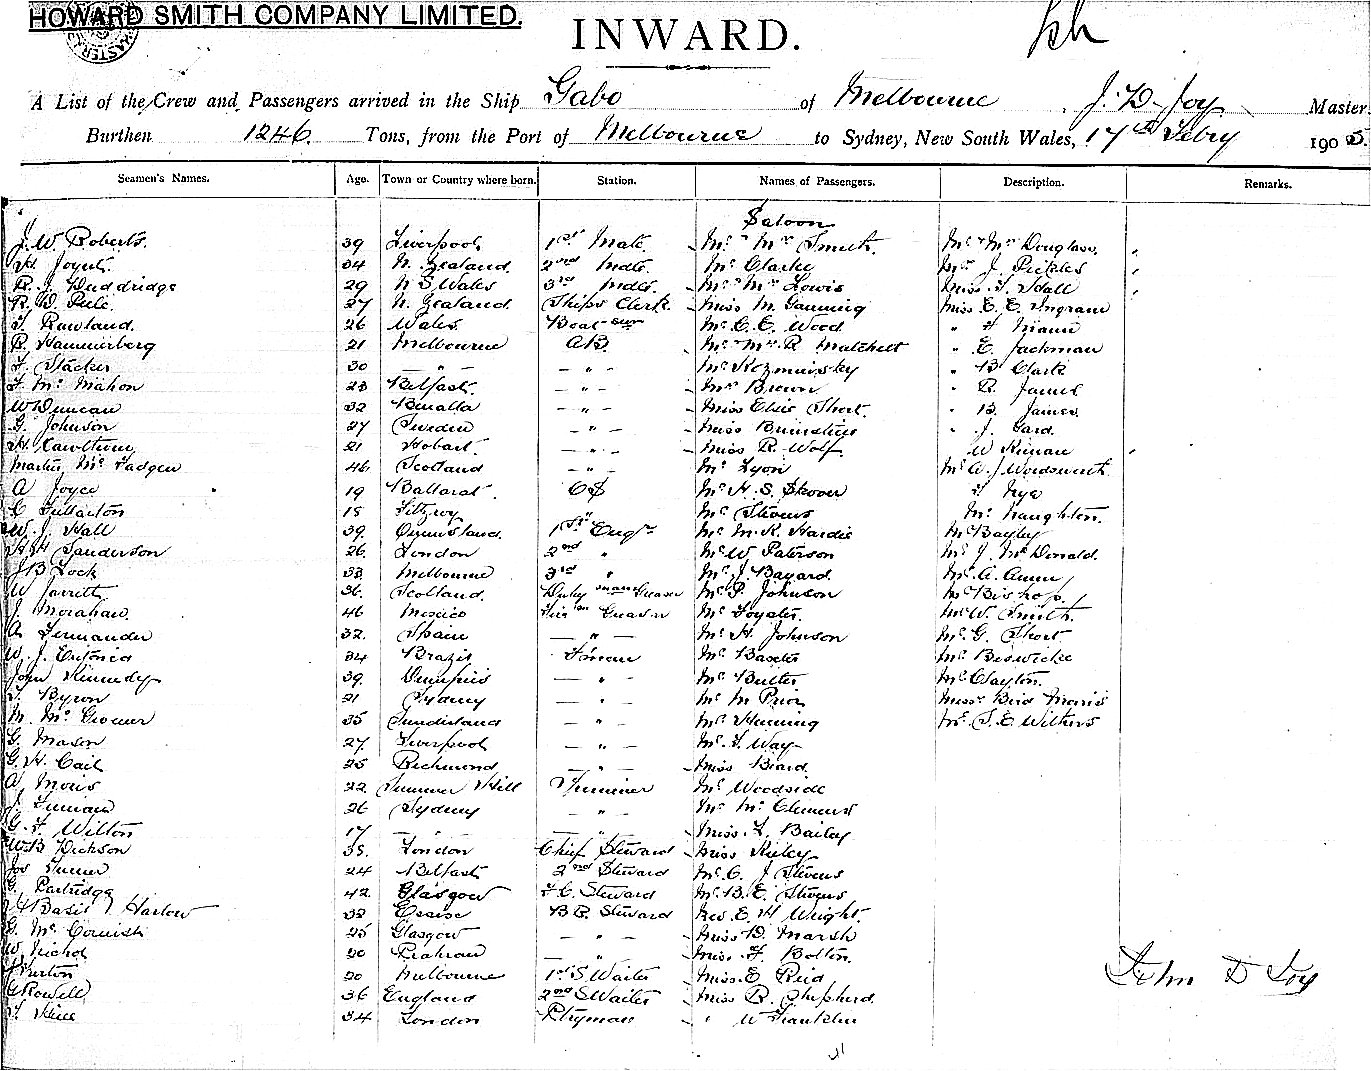 HOWARD SMITH COMPANY LIMITED.
INWARD.
A List of the Crew and Passengers arrived in the Ship Gabo of Melbourne, J. D. Joy Master
Burthen 1246. Tons, from the Port of Melbourne to Sydney, New South Wales, 17th Febry 1905.
Seamen's Names. Age. Town or Country where born. Station. Names of Passengers. Description. Remarks.
Saloon
J. W. Roberts. 39 Liverpool 1st Mate. Mr & Mrs Smith. Mr & Mrs Douglass.
H. Joynt. 34 N. Zealand. 2nd Mate. Mr Clarke Mrs J. Pickles
R. J. Duddridge 29 N S Wales 3rd Mate. Mr & Mrs Lewis Miss F. Hall
R. D. 27 N. Zealand. Ships Clerk Miss M. Miss E. E. Ingram
T. Rawland. 26 Wales. Boatswn Mr C. E. Wood " F Mann
B. Hammerberg 21 Melbourne AB. Mr & Mrs R Matchett " E. Jackman
F. Stacker 30 — " — — " — Mr Kozminsky " B Clark
F. Mc Mahon 23 Belfast. — " — Mrs Brown " R. James
W Duncan 32 Benalla — " — Miss Elsie Short. " B. James
G. Johnson 27 Sweden — " — Miss " J. Gard.
H 21 Hobart. — " — Miss R. Wolf W
Martin Mc Fadgen 46 Scotland — " — Mr Lyon Mr A. J Woodsworth
A Joyce 19 Ballarat. OS Mr H. S. Skover F Nye
C Fullarton 18 Fitzroy " Mr Stevens Mr Naughton.
W. J. Hall 39. Queensland. 1st Engr Mr M. R. Hardie Mr Bayley
H H Sanderson 26. London 2nd " Mr W Paterson Mr J. Mc Donald.
J B Lock 33. Melbourne 3rd " Mr J. Bayard. Mr A.
W Jarrett 36. Scotland. Dkyman Greaser Mr P. Johnson Mr Bishop.
J. Morahan. 46 Mexico Greaser Mr Foyster Mr W. Smith.
A. Fernander 32. Spain — " — Mr H. Johnson Mr G. Short
W. J. 34 Brazil Fireman Mr Baxter Mr Beswicke
John Kennedy 39. Dumfries — " — Mr Butler Mr Clayton.
T. Byron 21 Sydney — " — Mr M Prior Messrs Bird Morris
M. Mc 35 Sunderland — " — Mr Henning Mr S. E. Wilkins
G. Mason 27. Liverpool — " — Mr F. Way
G. H. Cail 25 Richmond — " — Miss Beard.
A. Moris 22 Summer Hill Trimmer Mr Woodside
J. 26 Sydney " Mr Mc Clemens
G. F. Wilton 17 — " — " Miss L. Bailey
W. B Dickson 38. London Chief Steward Miss Kieley
Jos Turner 24 Belfast 2nd Steward Mr C. J Stevens
G. Partridge 42. Glasgow F. C. Steward Mr B. E. Stevens
Basil J Harlow 32 B R. Steward Rev. E. H Wright.
G. Mc Cornish 25 Glasgow — " — Miss D. Marsh
W. Nichol 20 Prahran — " — Miss F. Bolton.
Purton 20 Melbourne 1st S Waiter Miss E. Reid
G Rowell 36 England 2nd S Waiter Miss R. Shepherd.
T. 34 London Ptryman " W Franklin
John D Joy